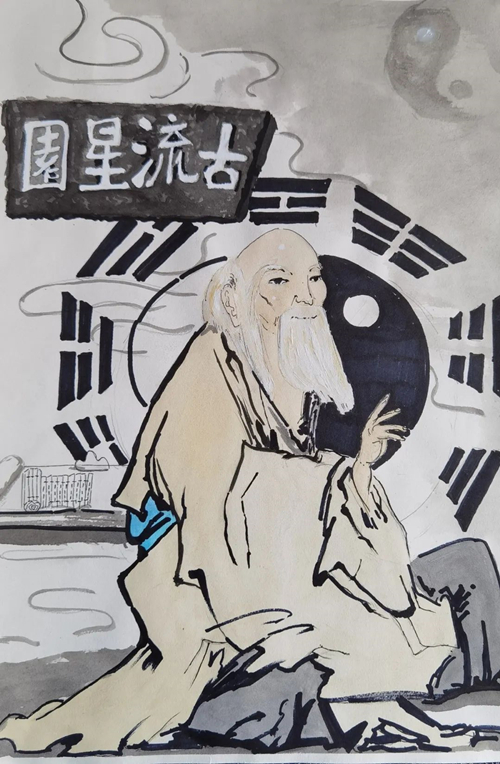 古流星園